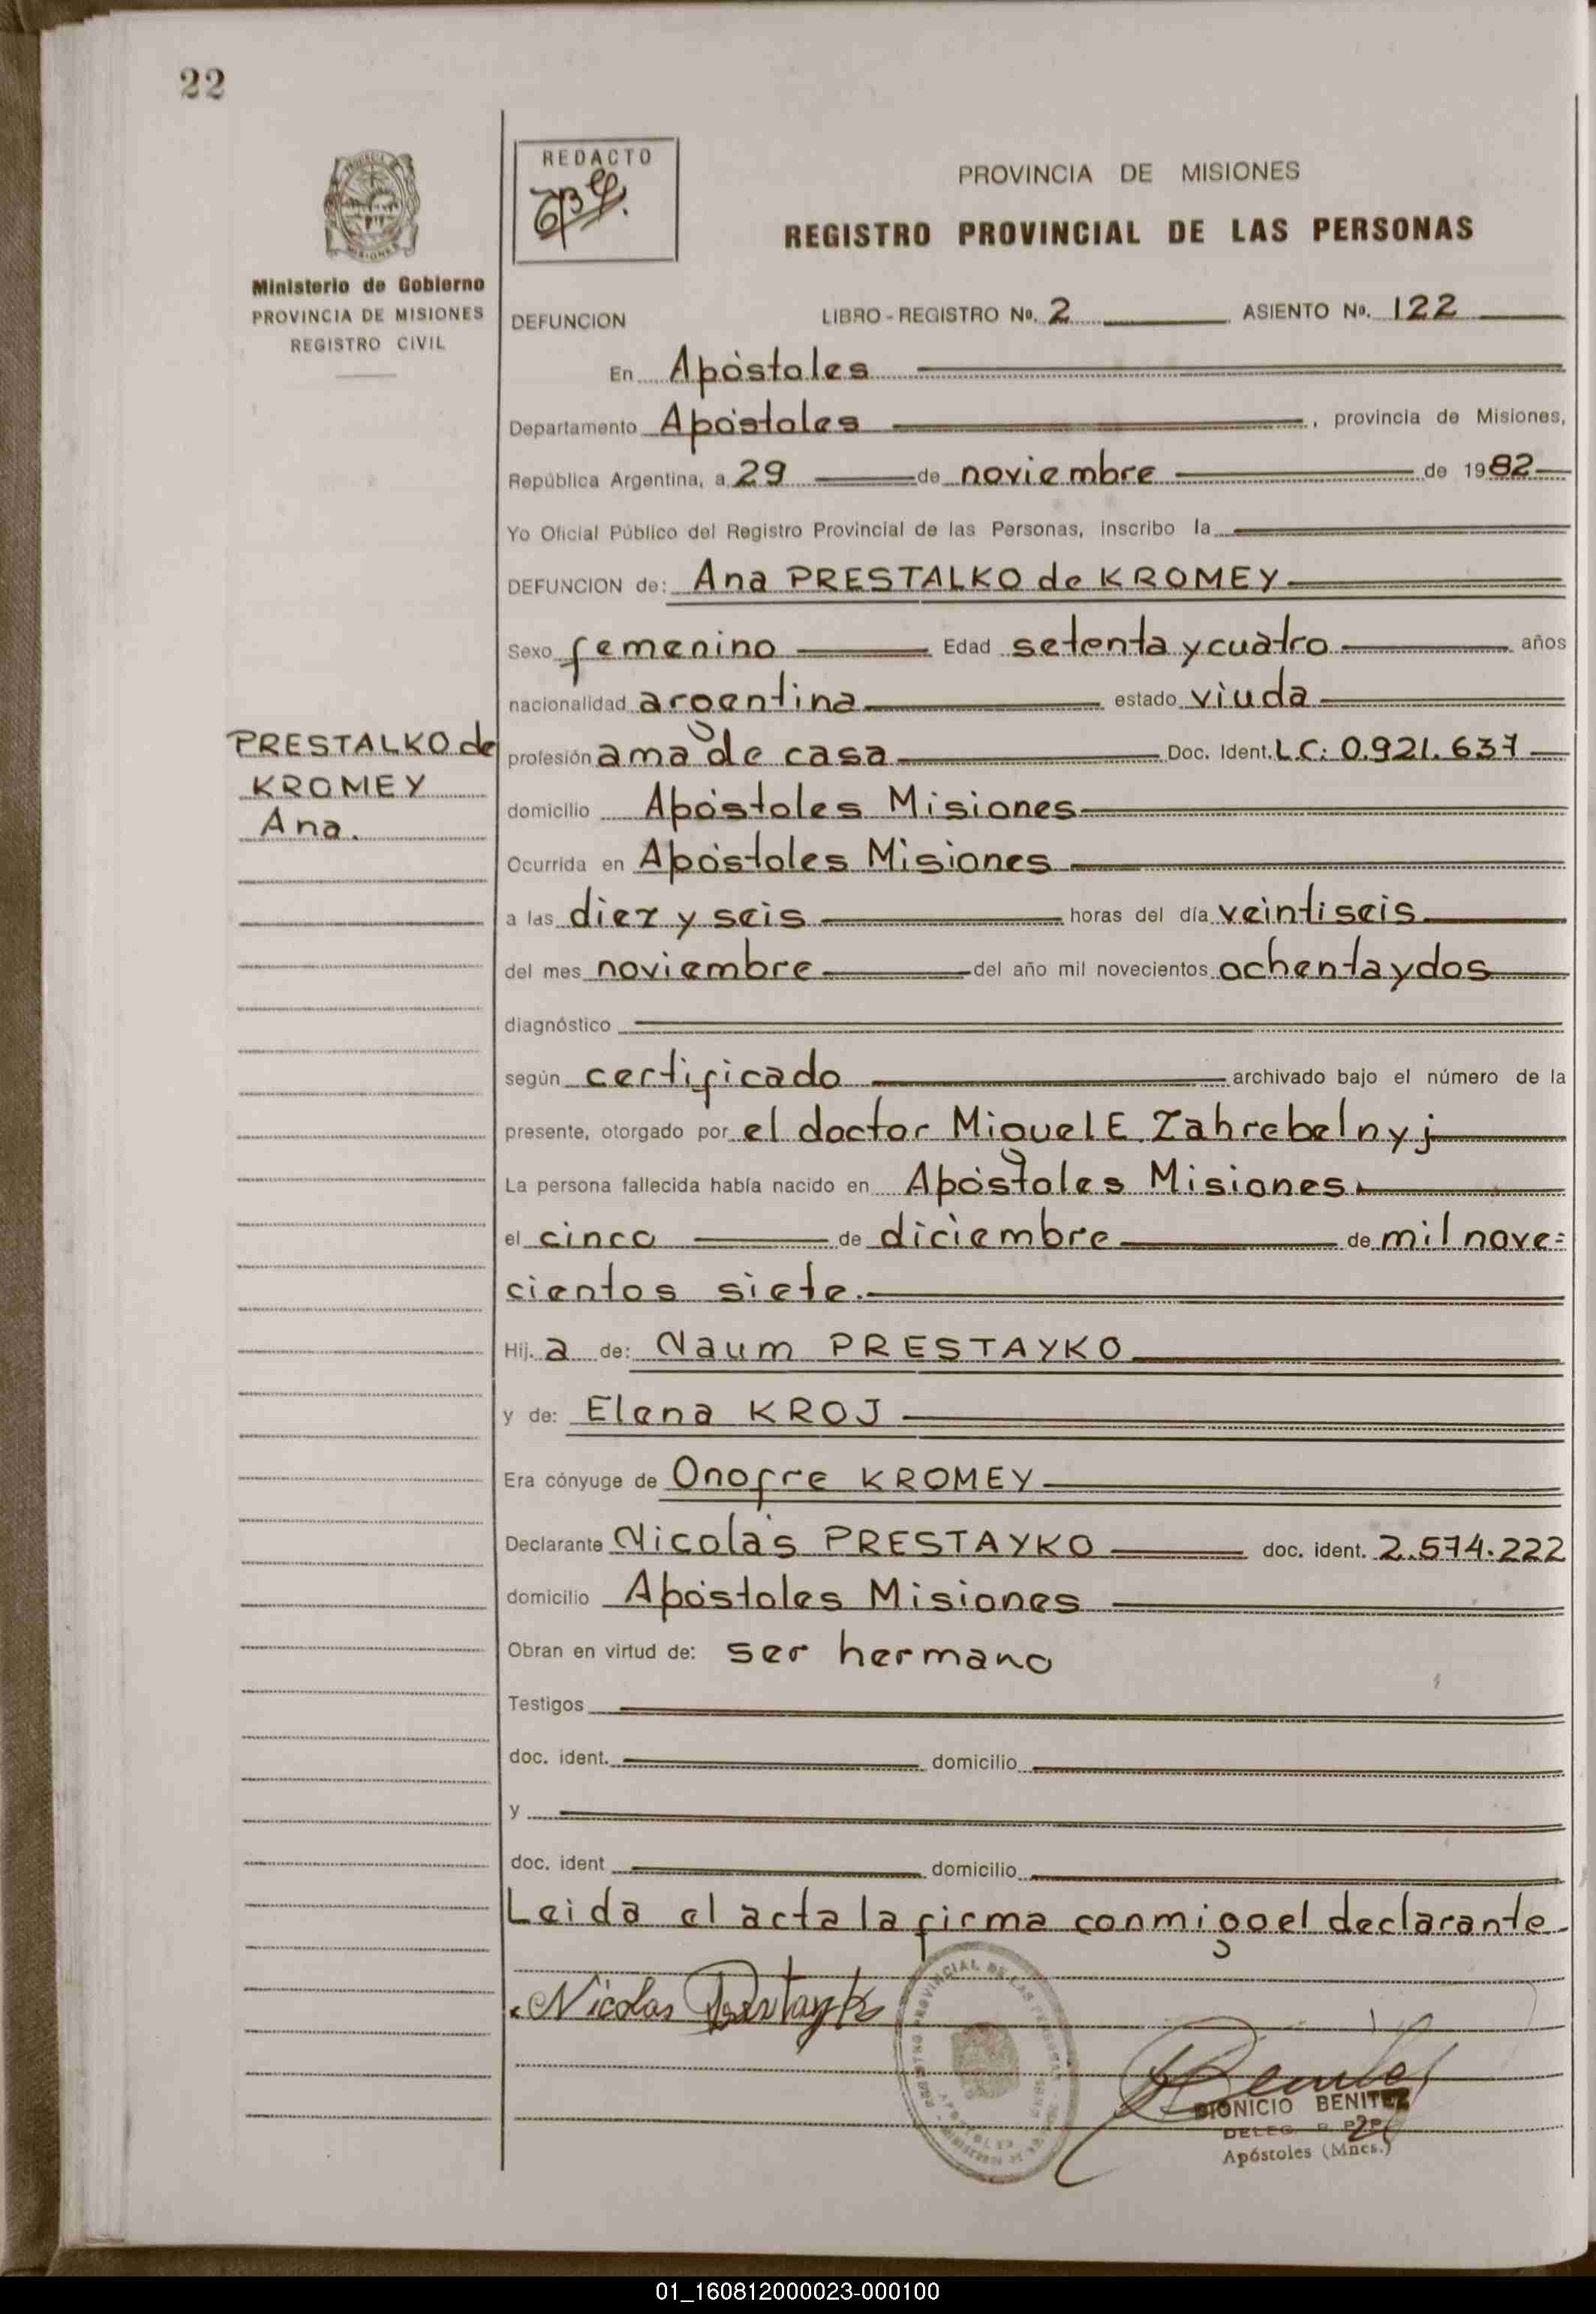 22
REDACTO
PROVINCIA DE MISIONES
REGISTRO PROVINCIAL DE LAS PERSONAS
Ministerio de Gobierno
PROVINCIA DE MISIONES
REGISTRO CIVIL
DEFUNCION LIBRO - REGISTRO Nº. 2 ASIENTO Nº. 122
En Apóstoles
Departamento Apóstoles, provincia de Misiones,
República Argentina, a 29 de noviembre de 1982
Yo Oficial Público del Registro Provincial de las Personas, inscribo la
DEFUNCION de: Ana PRESTALKO de KROMEY
Sexo femenino Edad setenta y cuatro años
nacionalidad argentina estado viuda
PRESTALKO de
KROMEY
Ana.
profesión ama de casa Doc. Ident. L.C: 0.921.637
domicilio Apóstoles Misiones
Ocurrida en Apóstoles Misiones
a las diez y seis horas del día veintiseis
del mes noviembre del año mil novecientos ochenta y dos
diagnóstico
según certificado archivado bajo el número de la
presente, otorgado por el doctor Miguel E. Zahrebelnyj
La persona fallecida había nacido en Apóstoles Misiones.
el cinco de diciembre de mil nove=
cientos siete.
Hij. a de: Naum PRESTAYKO
y de: Elena KROJ
Era cónyuge de Onofre KROMEY
Declarante Nicolás PRESTAYKO doc. ident. 2.574.222
domicilio Apóstoles Misiones
Obran en virtud de: ser hermano
Testigos
doc. ident. domicilio
y
doc. ident domicilio
Leida el acta la firma conmigo el declarante
Nicolas Prestayko
DIONICIO BENITEZ
DELEG. R. P. P.
Apóstoles (Mnes.)
01_160812000023-000100